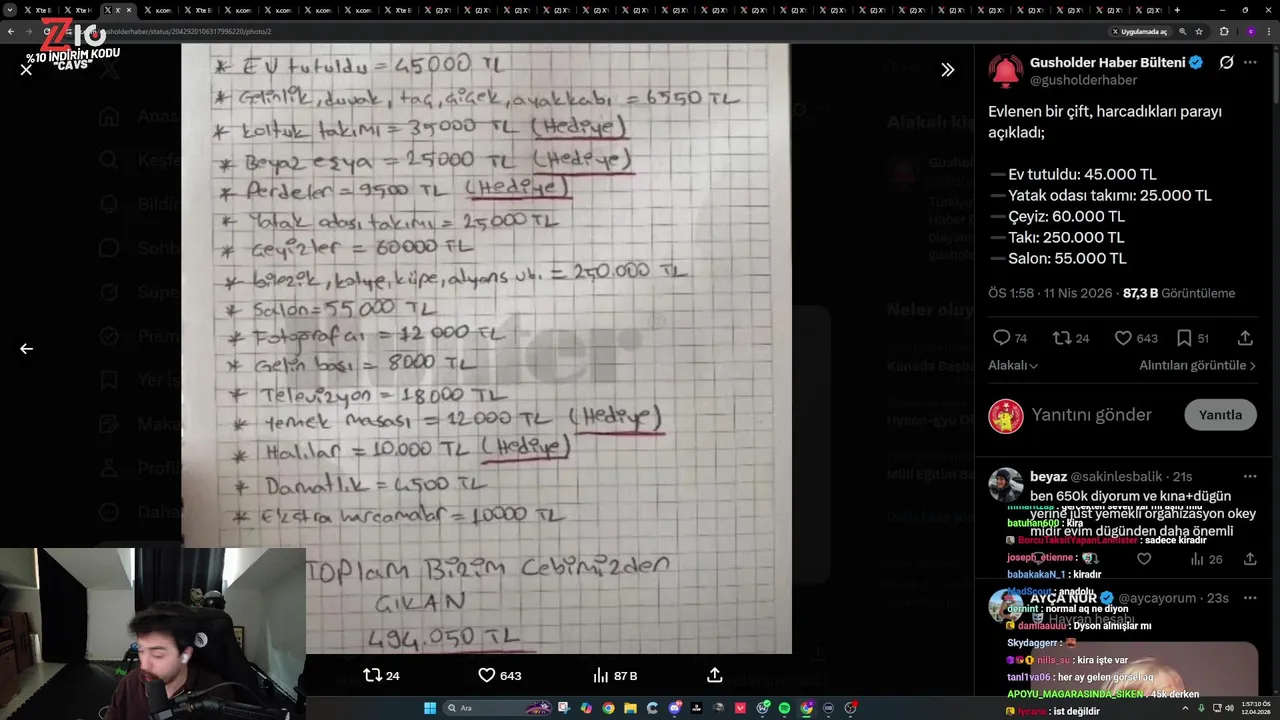 gusholderhaber/status/2042920106317996220/photo/2
Uygulamada aç
Z10
%10 İNDİRİM KODU
"CAVS"
* EV tutuldu = 45000 TL
* Gelinlik, duvak, taç, çiçek, ayakkabı = 6550 TL
* koltuk takımı = 35000 TL (Hediye)
* Beyaz eşya = 25000 TL (Hediye)
* Perdeler = 9500 TL (Hediye)
* Yatak odası takımı = 25000 TL
* Çeyizler = 60000 TL
* bilezik, kolye, küpe, alyans vb. = 250.000 TL
* Salon = 55000 TL
* Fotoğrafçı = 12000 TL
* Gelin başı = 8000 TL
* Televizyon = 18000 TL
* Yemek masası = 12000 TL (Hediye)
* Halılar = 10.000 TL (Hediye)
* Damatlık = 4500 TL
* Ekstra harcamalar = 10000 TL
TOPLAM Bizim Cebimizden
ÇIKAN
494.050 TL
24
643
87 B
Gusholder Haber Bülteni
@gusholderhaber
Evlenen bir çift, harcadıkları parayı
açıkladı;
— Ev tutuldu: 45.000 TL
— Yatak odası takımı: 25.000 TL
— Çeyiz: 60.000 TL
— Takı: 250.000 TL
— Salon: 55.000 TL
ÖS 1:58 · 11 Nis 2026 · 87,3 B Görüntüleme
74
24
643
51
Alakalı
Alıntıları görüntüle
Yanıtını gönder
Yanıtla
beyaz @sakinlesbalik · 21s
ben 650k diyorum ve kına+düğün
yerine lüst yemekli organizasyon okey
midir evim düğünden daha önemli
batuhan600 : Kira
BorcuTaksitYapanLannister : sadece kiradır
joseph_etienne :
babakakaN_1 : kiradır
26
MadScout : anadolu
AYÇA NUR @aycayorum · 23s
dernint : normal aq ne diyon
Hayran hesabı
damlaauuu : Dyson almışlar mı
Skydaggerr :
nills_su : kira işte var
tanl1va06 : her ay gelen görsel aq
APOYU_MAGARASINDA_SIKEN : 45k derken
lycaria : ist değildir
Ara
1:57:10 ÖS
12.04.2026